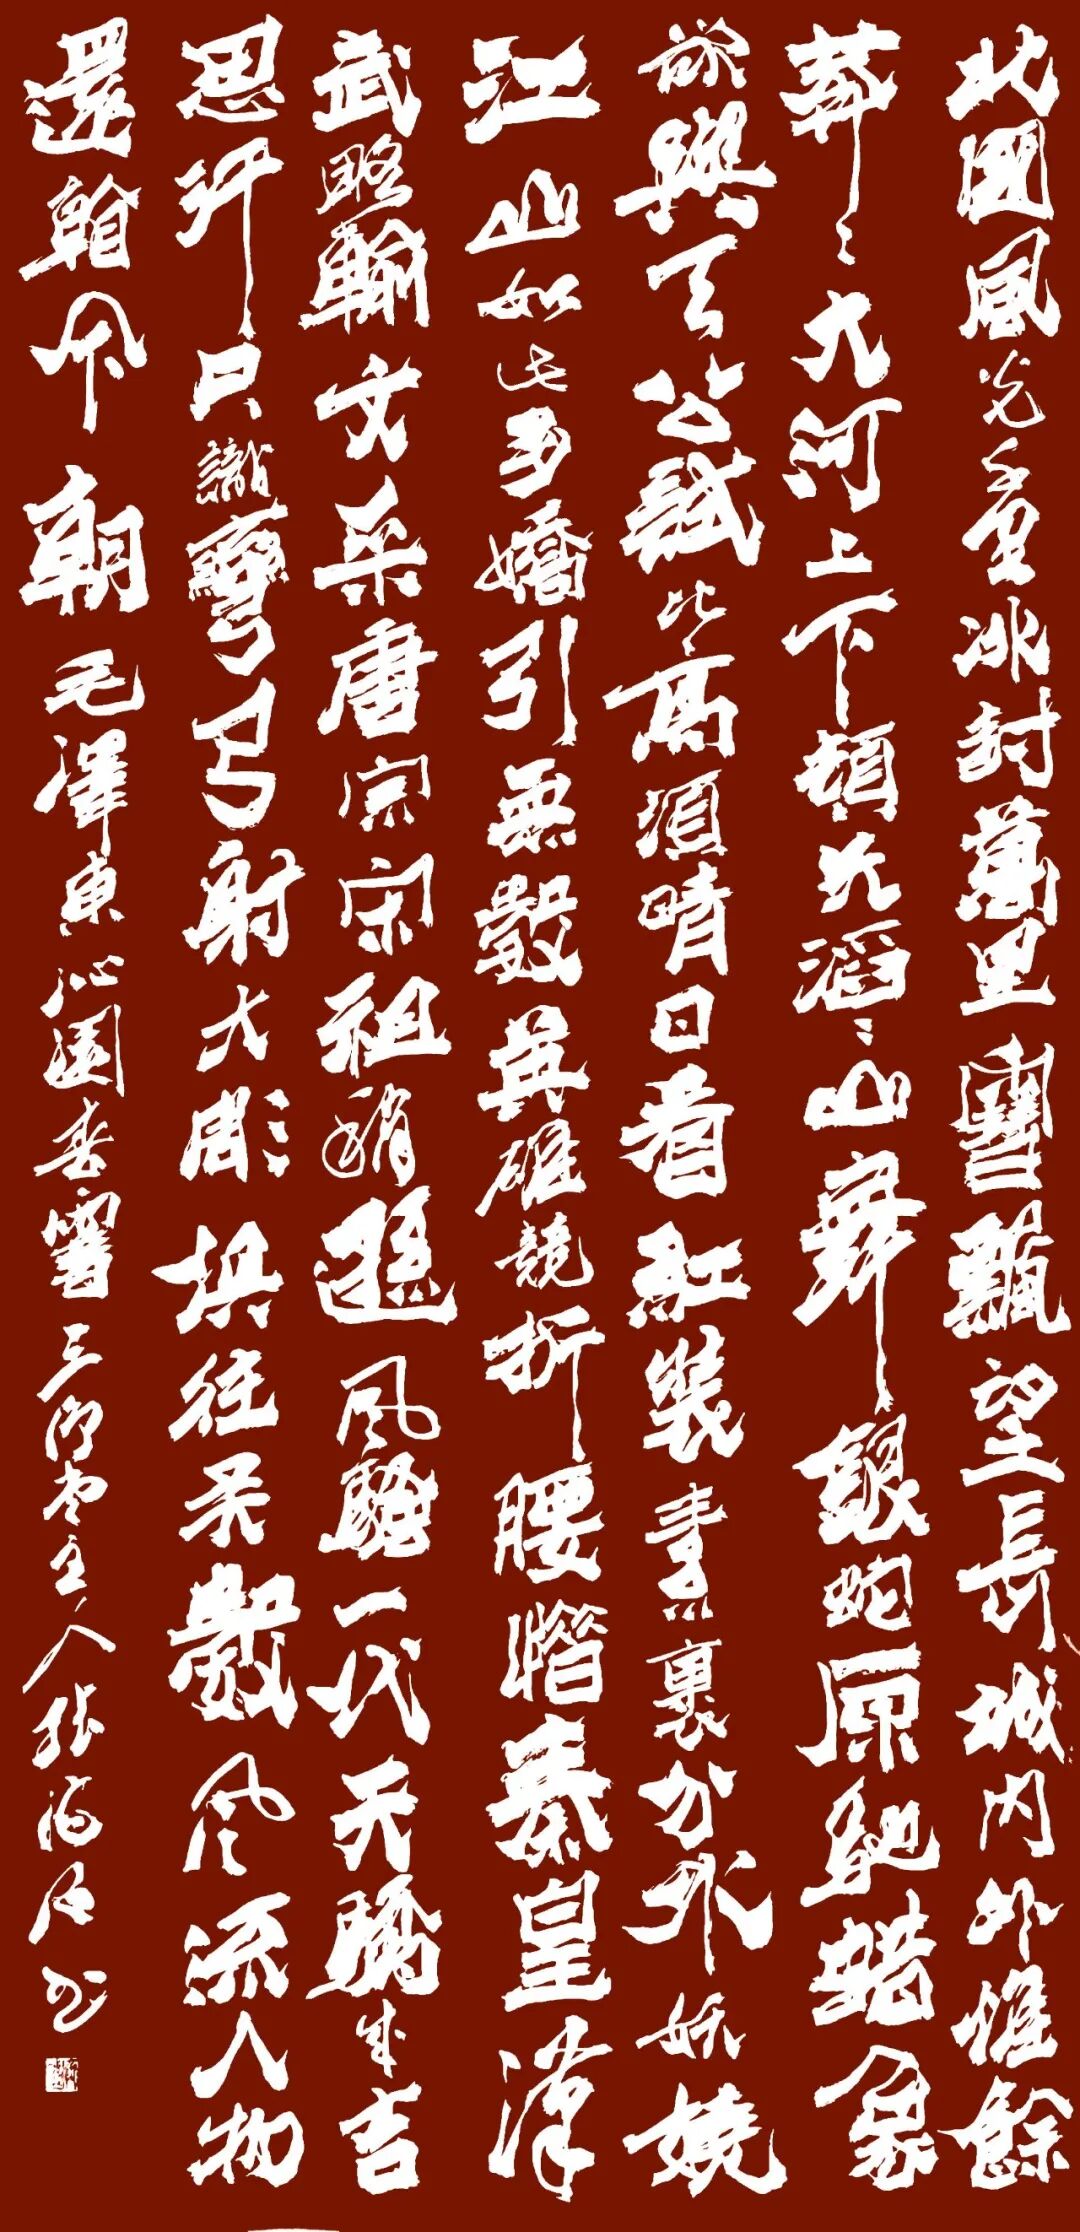 北國風光千里冰封萬里雪飄望長城內外惟餘
莽〻大河上下頓失滔〻山舞銀蛇原馳蜡象
欲與天公試比高須晴日看紅裝素裹分外妖嬈
江山如此多嬌引無數英雄競折腰惜秦皇漢
武略輸文采唐宗宋祖稍遜風騷一代天驕成吉
思汗只識彎弓射大彫俱往矣數風流人物
還看今朝 毛澤東沁園春雪 三 堂主人張 书